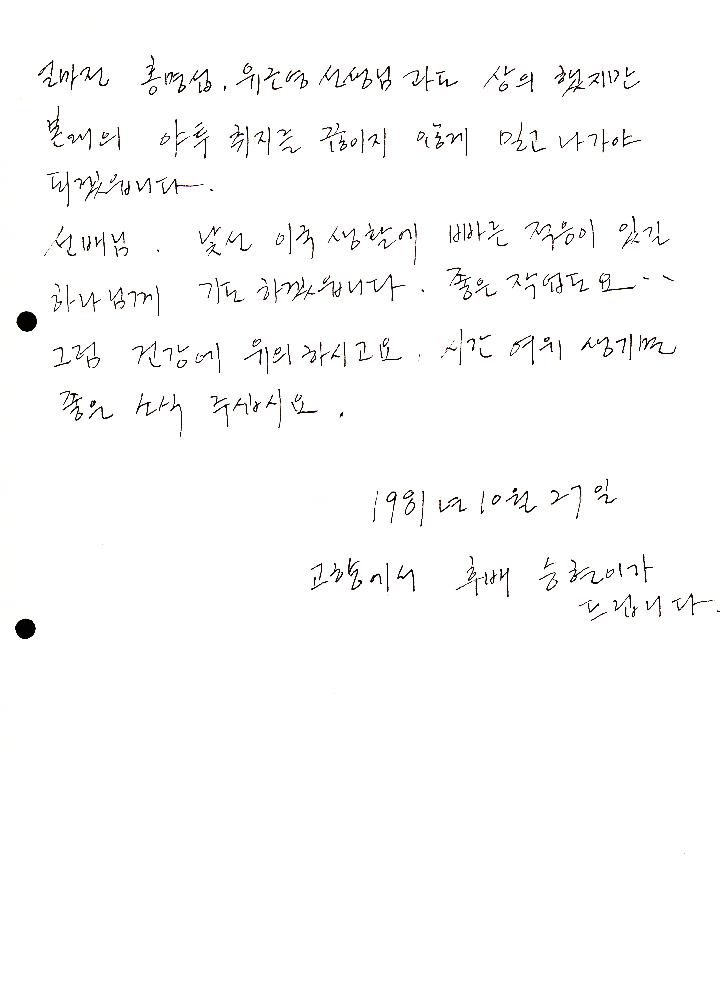 얼마전 홍명섭. 위근영 선생님 과도 상의 했지만
본래의 야투 취지를 꺾이지 않게 밀고 나가야
되겠읍니다.
선배님. 낯선 이국 생활에 빠른 적응이 있길
하나님께 기도 하겠읍니다. 좋은 작업도요‥
그럼 건강에 유의하시고요. 시간 여유 생기면
좋은 소식 주십시요.
1981년 10월 27일
고향에서 후배 승현이가
드립니다.